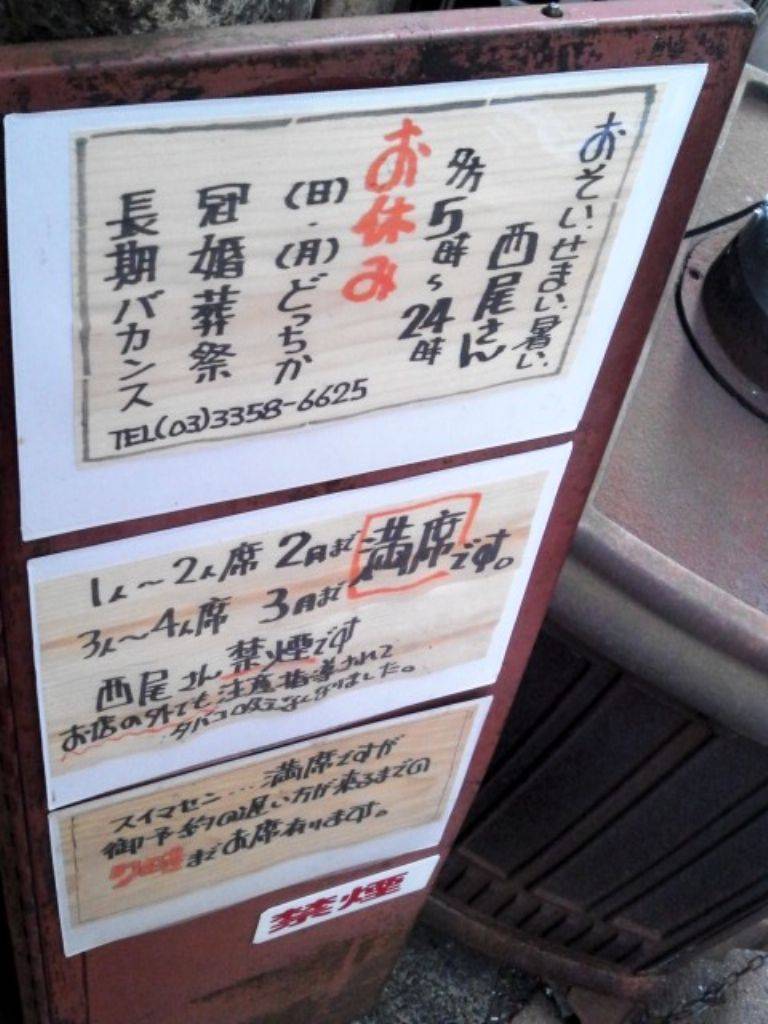 おそい、せまい、暑い、
西尾さん
夕方5時〜24時
お休み
(日)・(月)どっちか
冠婚葬祭
長期バカンス
TEL(03)3358-6625
1人〜2人席 2月まで
3人〜4人席 3月まで
満席です。
西尾さん禁煙です
お店の外でも注意指導されて
タバコ吸えなくなりました。
スイマセン…満席ですが
御予約の遅い方が来るまでの
まで お席有ります。
禁煙